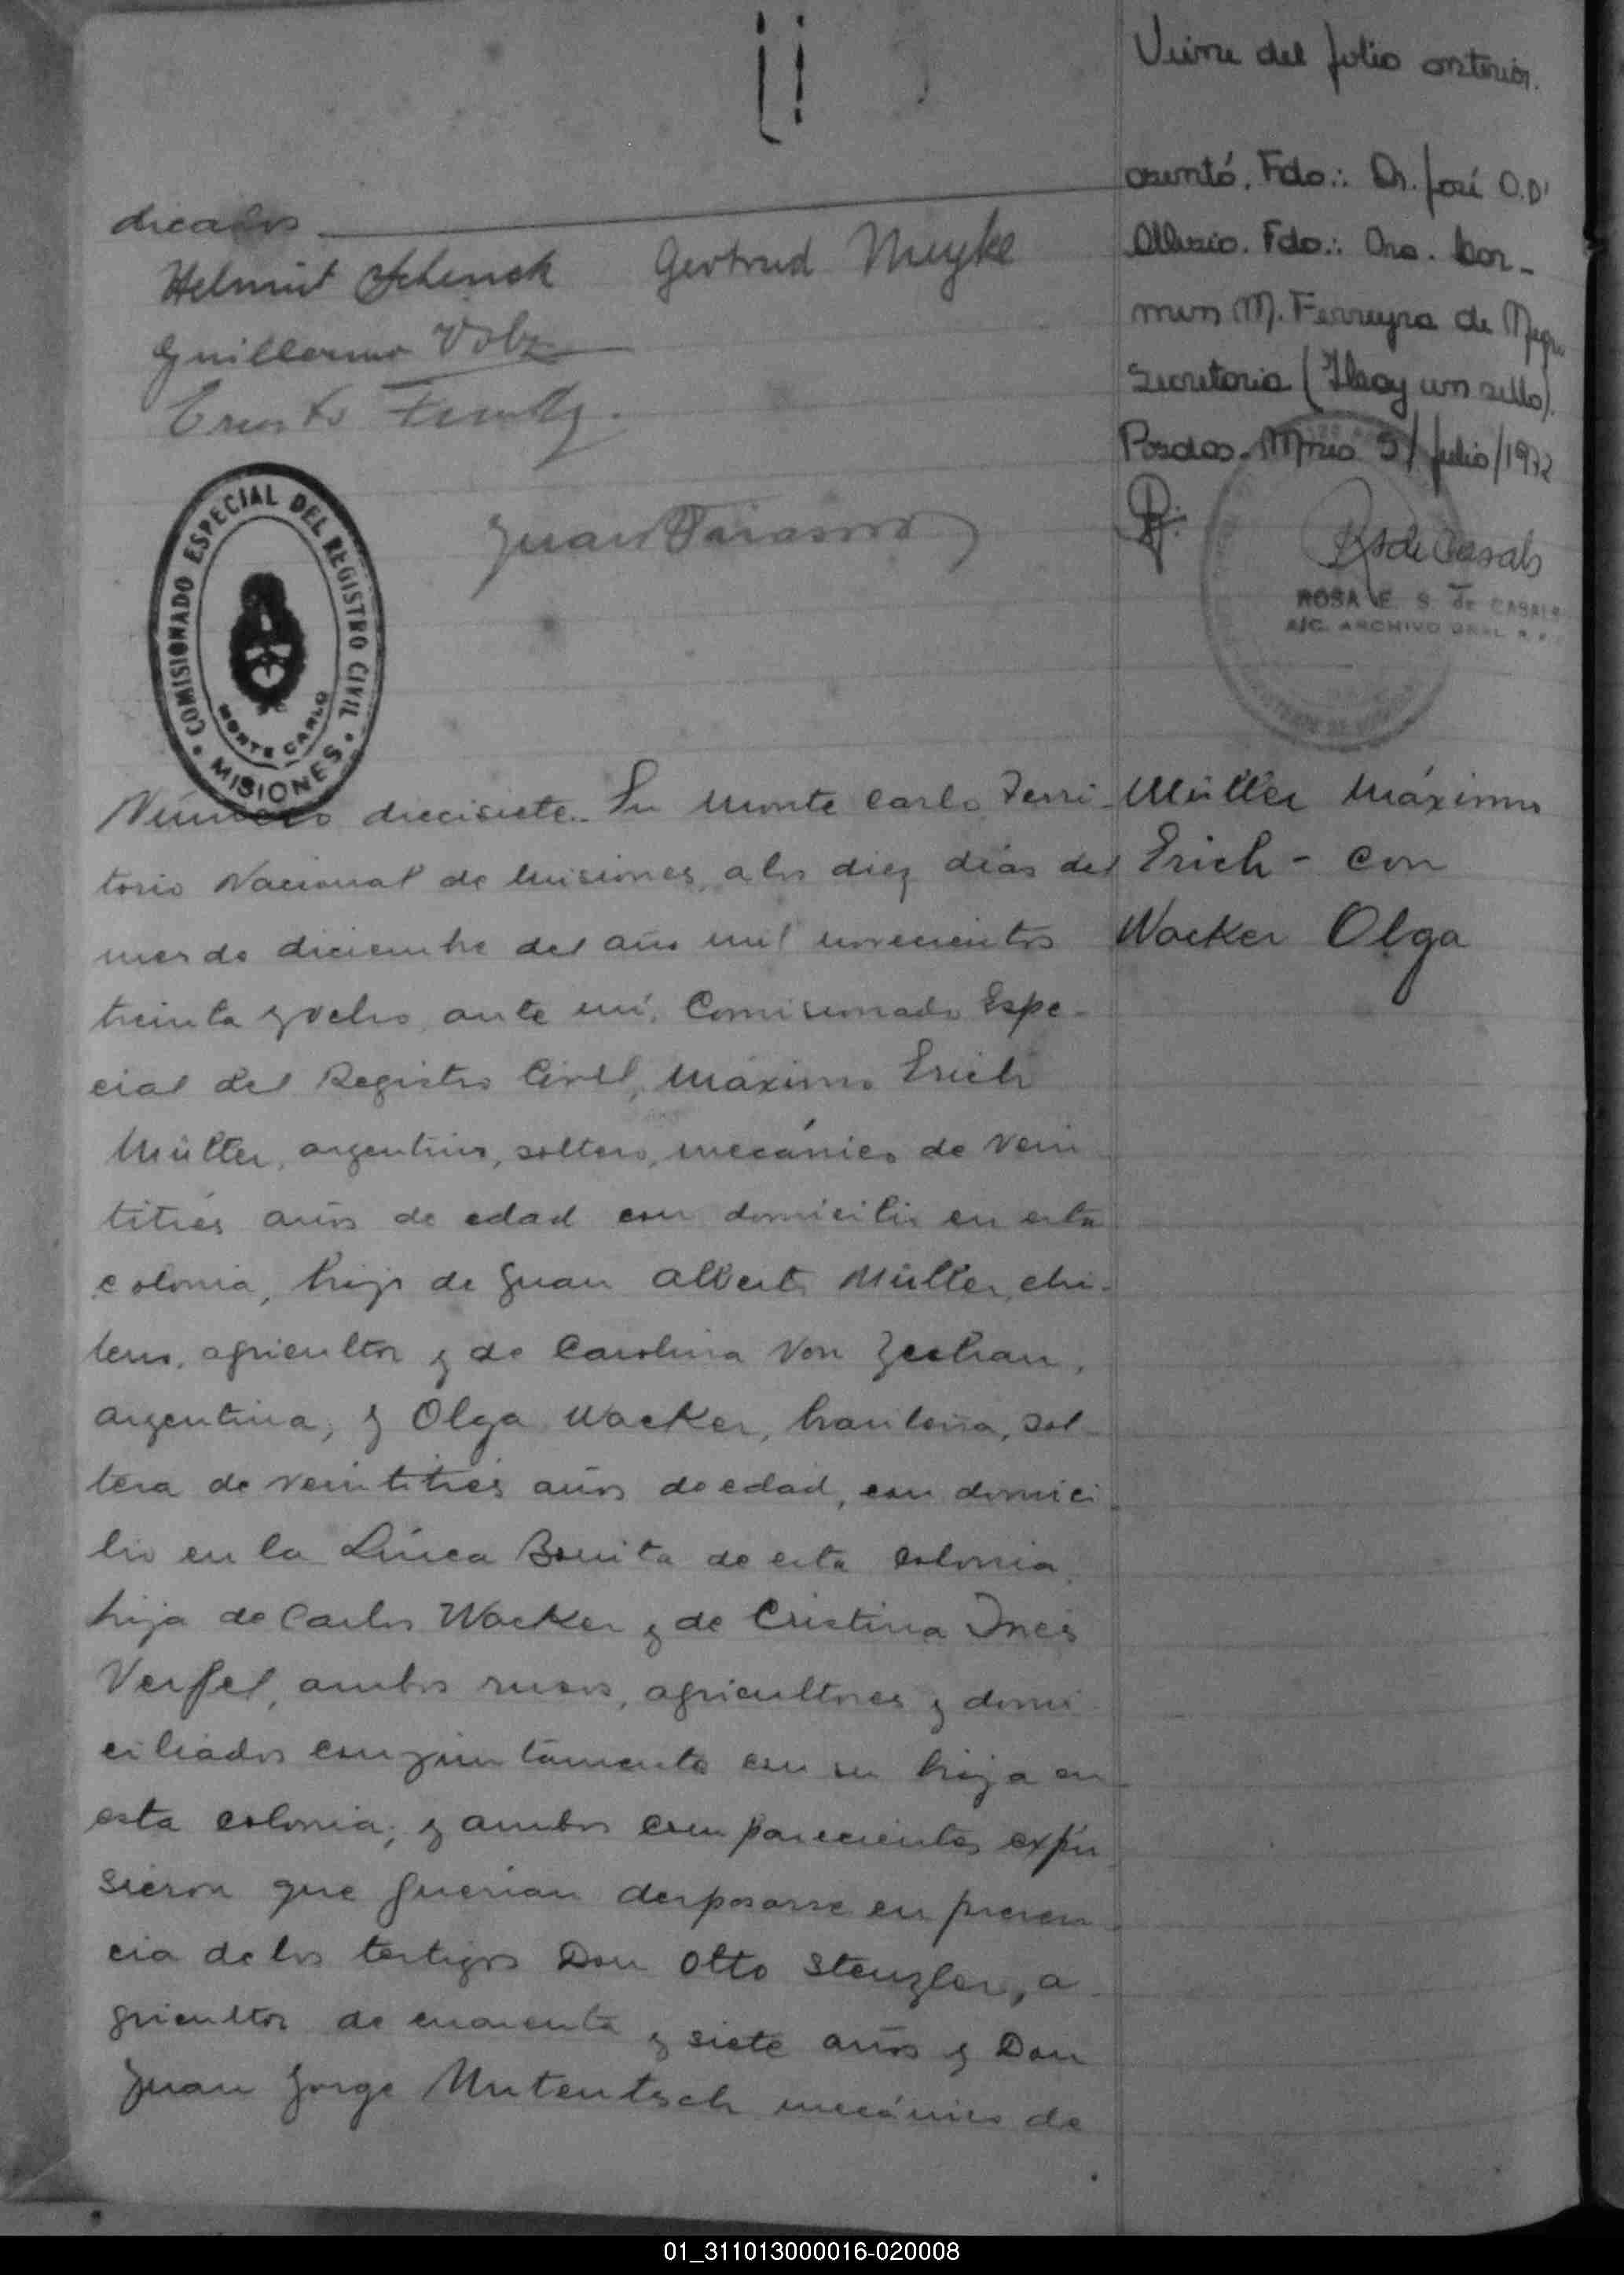 Viene del folio anterior.
asentó. Fdo.: Dr. José O. D'
Fdo.: Dra. Car-
men M. Ferreyra de
Secretaria (Hay un sello).
Posdas. Mnes 5/julio/1972
R. S. de Casals
ROSA E. S. de CASALS
A/C. ARCHIVO GRAL. R. P.
dicados
Helmut Schenck Gertrud Meyke
Guillermo Volz
Ernesto
Juan
COMISIONADO ESPECIAL DEL REGISTRO CIVIL
MONTE CARLO
MISIONES
Müller Máximo
Erich - con
Wacker Olga
Número diecisiete. En Monte Carlo Terri-
torio Nacional de Misiones, a los diez días del
mes de diciembre del año mil novecientos
treinta y ocho, ante mí, Comisionado Espe-
cial del Registro Civil, Máximo Erich
Müller, argentino, soltero, mecánico de vein
titrés años de edad con domicilio en esta
colonia, hijo de Juan Alberto Müller, chi-
leno, agricultor y de Carolina Von Zeschau,
argentina; y Olga Wacker, brasileña, sol-
tera de veintitrés años de edad, con domici
lio en la Línea Bonita de esta colonia,
hija de Carlos Wacker y de Cristina Inés
Verfel, ambos rusos, agricultores y domi
ciliados conjuntamente con su hija en
esta colonia; y ambos comparecientes expu
sieron que querían desposarse en presen
cia de los testigos Don Otto Stenzler, a
gricultor de cuarenta y siete años y Don
Juan Jorge mecánico de
01_311013000016-020008